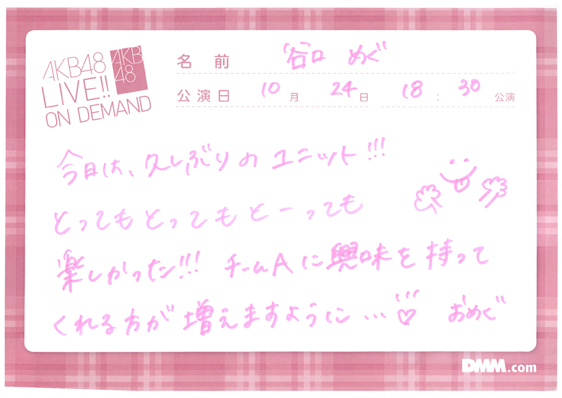 AKB48
LIVE!!
ON DEMAND
AKB
48
名前 谷口 めぐ
公演日 10月 24日 18:30 公演
今日は、久しぶりのユニット!!!
とってもとってもとーっても
楽しかった!!! チームAに興味を持って
くれる方が増えますように...♡ おめぐ
DMM.com